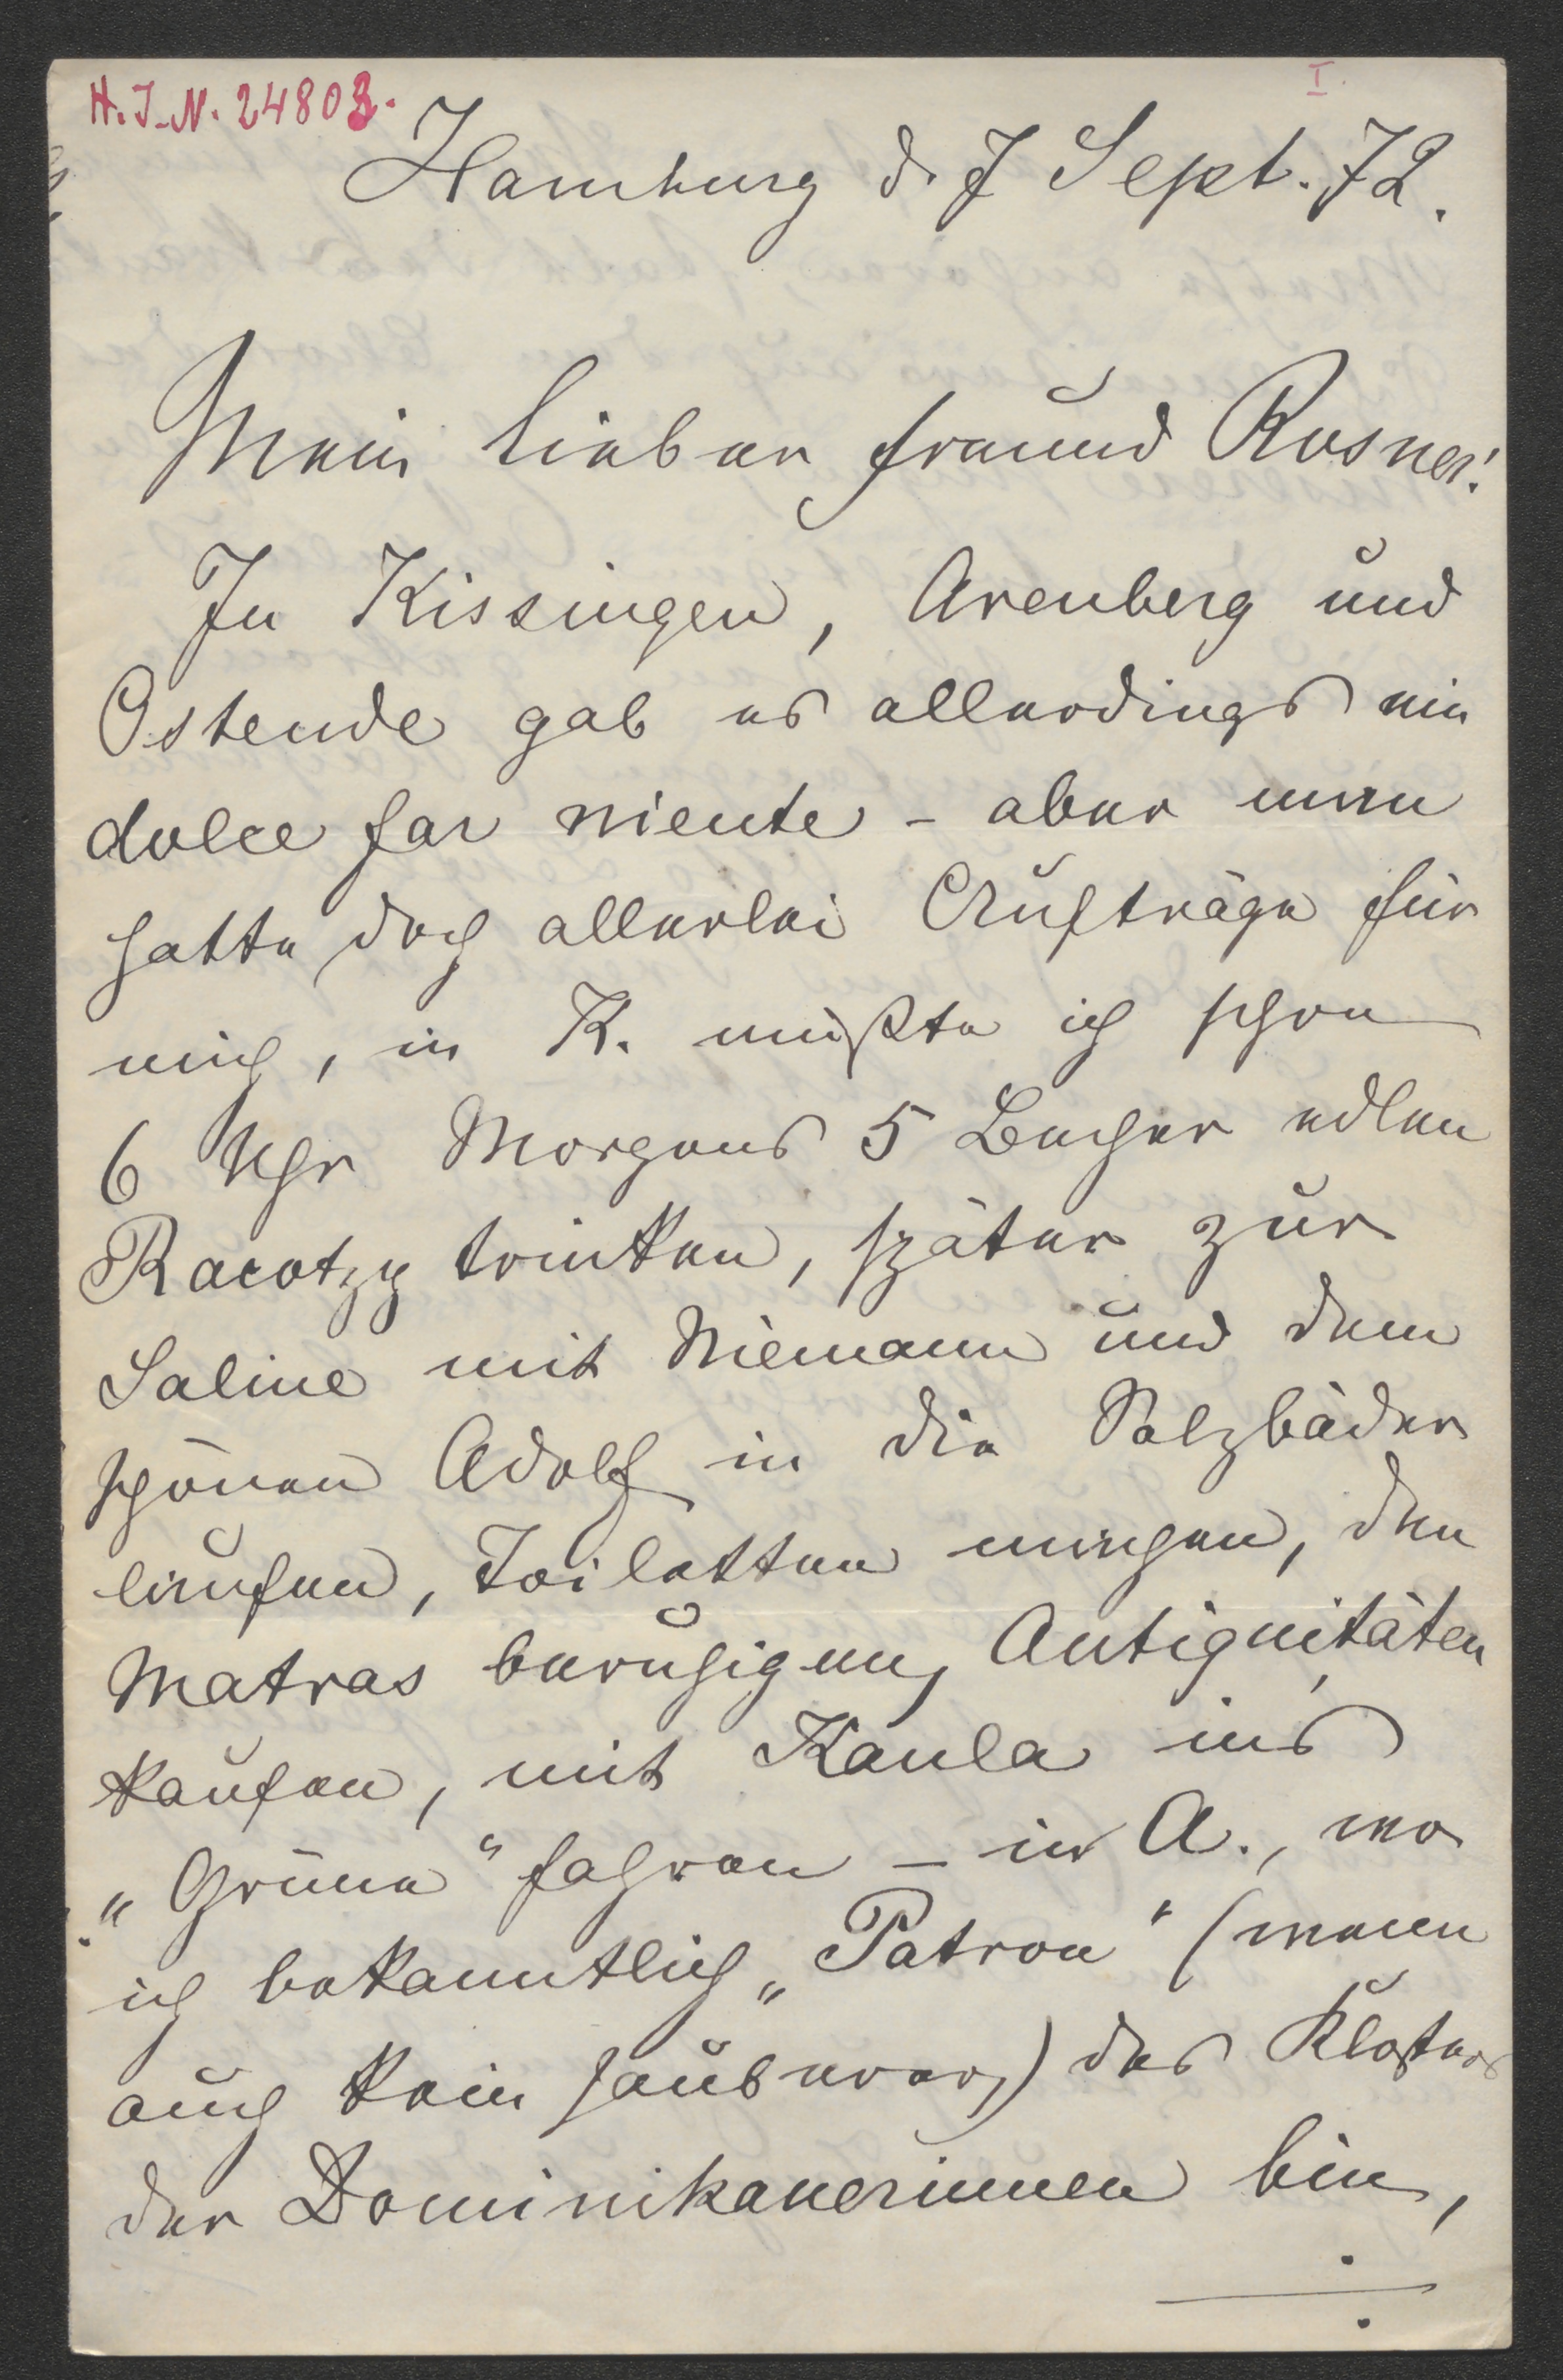 H.I.N. 24803.
I.
Hamburg d. 7 Sept. 72.
Mein lieber Freund Rosner!
In Kissingen, Arenberg und
Ostende gab es allerdings ein
dolce far niente – aber man
hatte doch allerlei Aufträge für
mich, in K. mußte ich schon
6 Uhr Morgens 5 Becher edlen
Racotzy trinken, später zur
Saline mit Niemann und dem
schönen Adolf in die Salzbäder
laufen, Toiletten machen, den
Matras beruhigen, Antiquitäten
kaufen, mit Kaula ins
„Grüne“ fahren – in A., wo
ich bekanntlich „Patron“ (wenn
auch kein sauberer) des Klosters
der Dominikanerinnen bin,